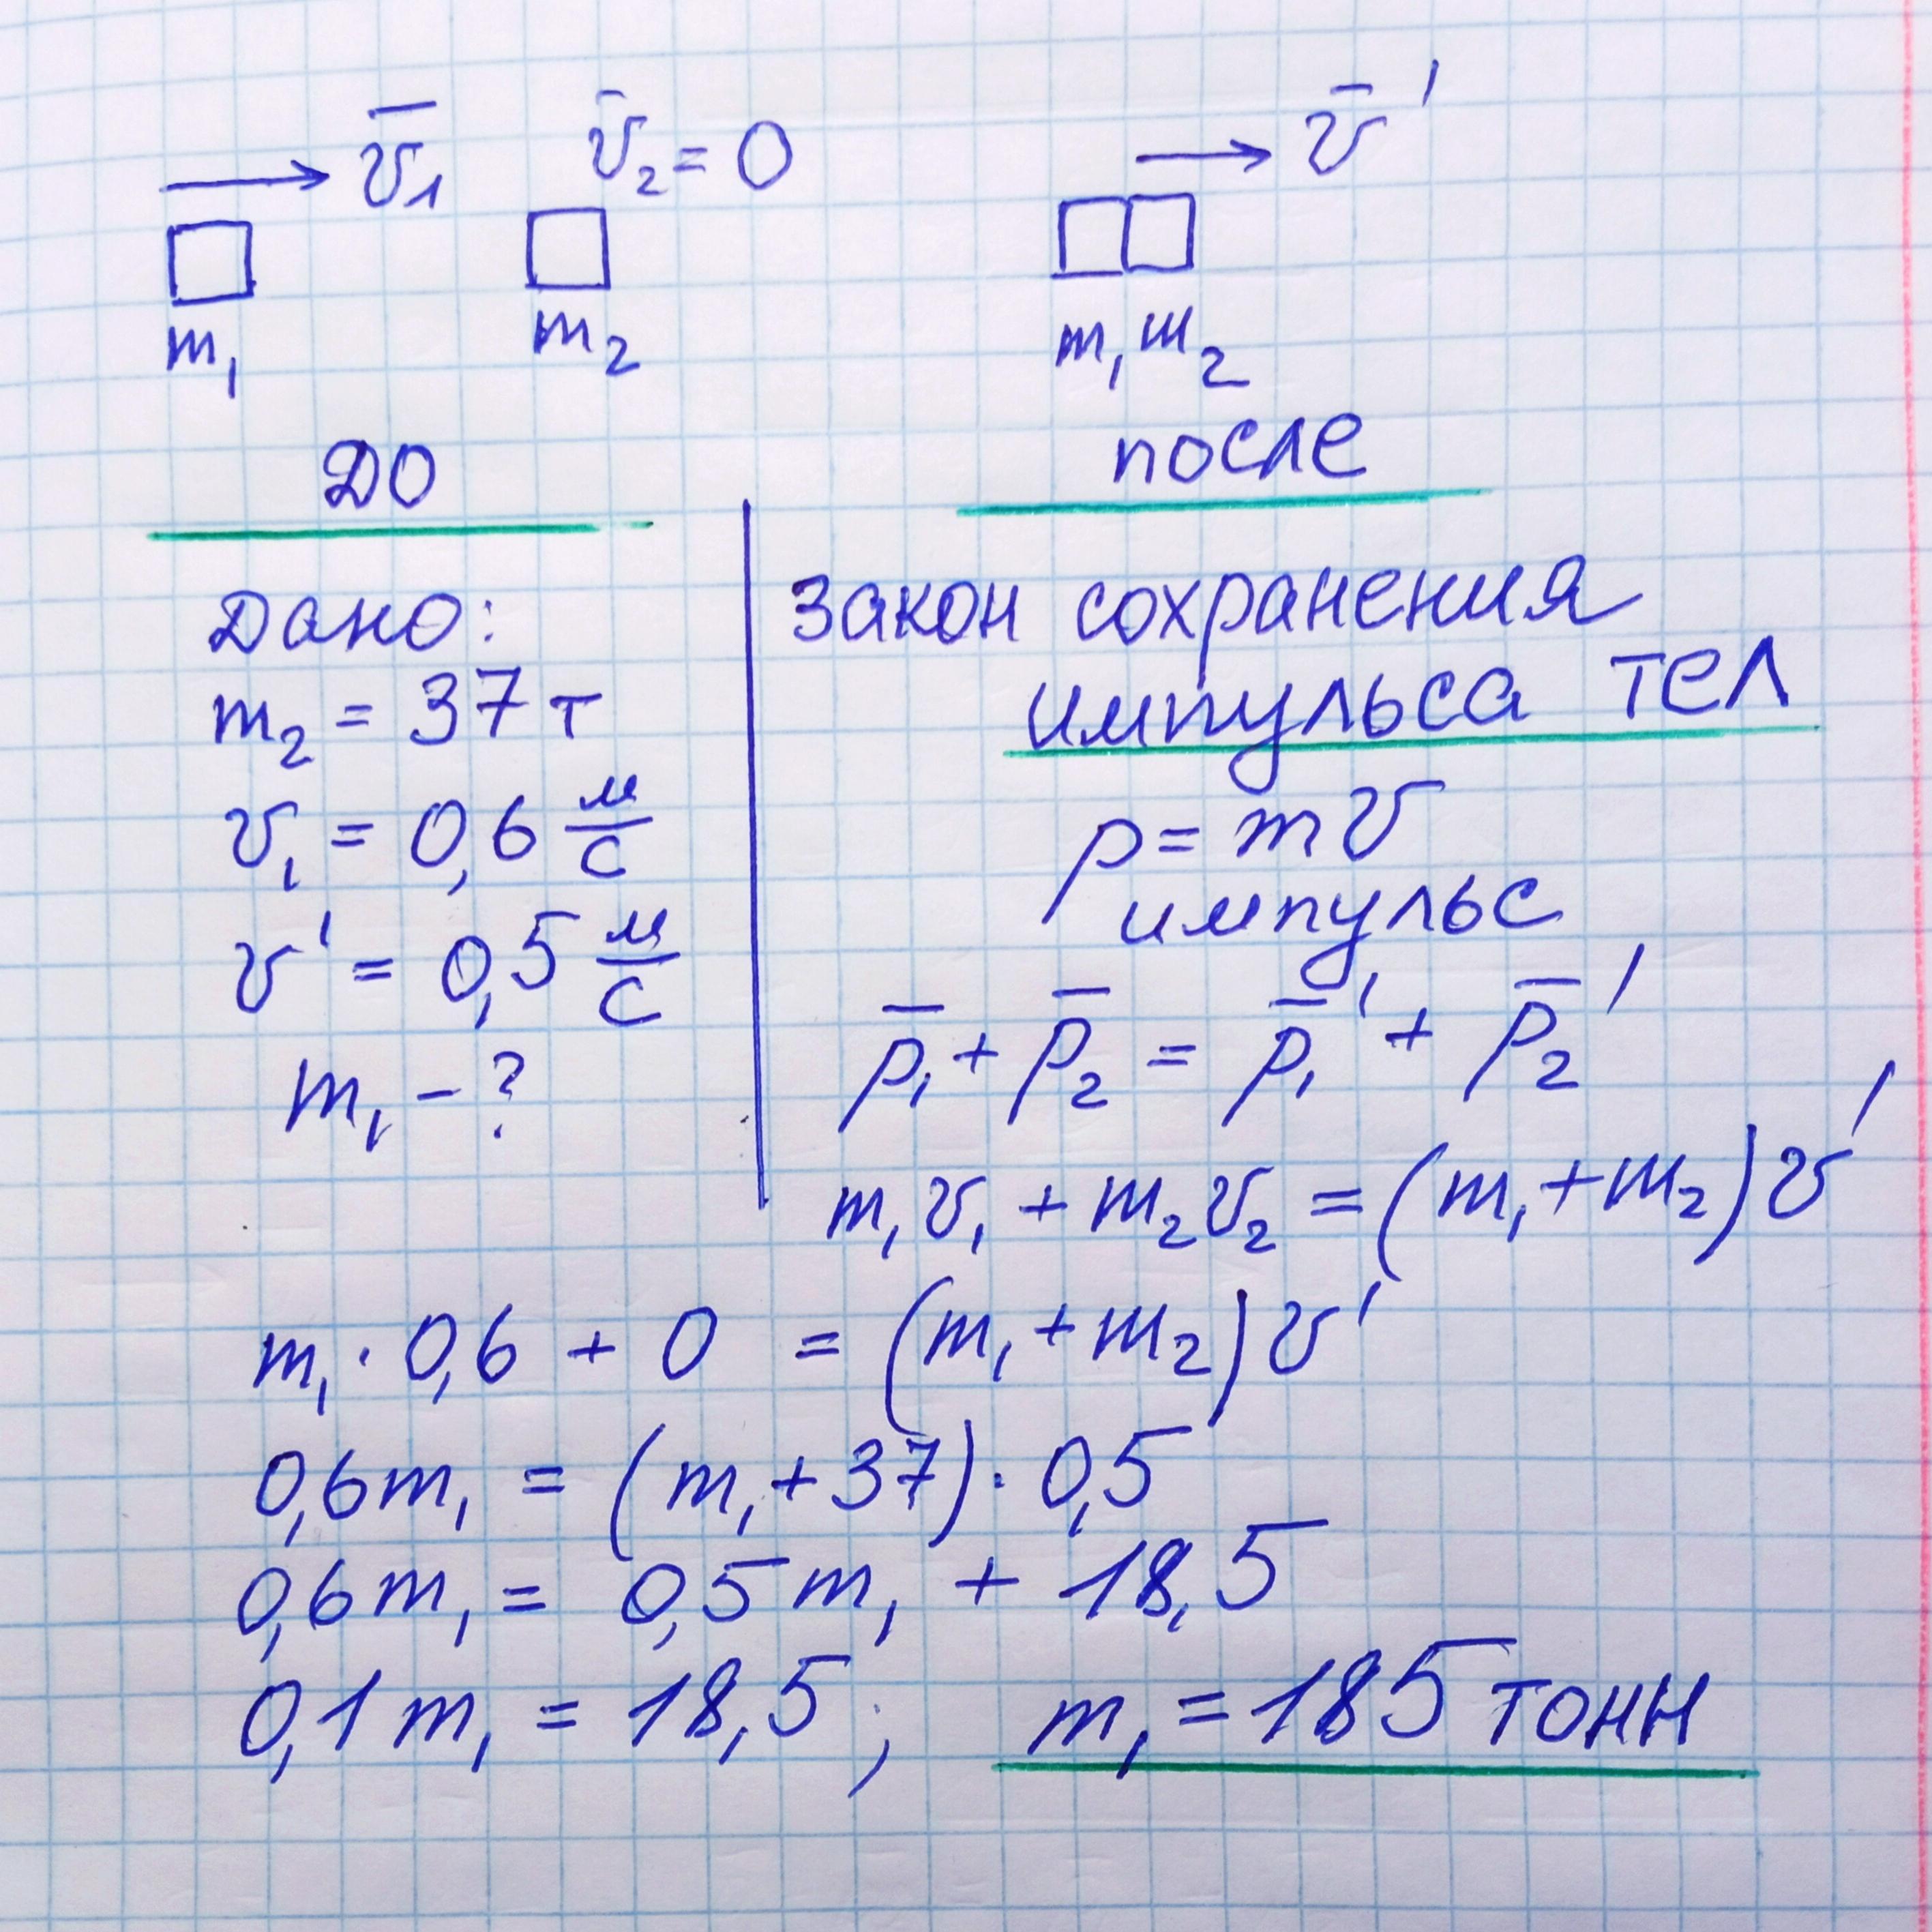 v̄₁ v̄₂ = 0 v̄'
m₁ m₂ m₁ m₂
до после
Дано:
m₂ = 37 т
v₁ = 0,6 м/с
v' = 0,5 м/с
m₁ - ?
Закон сохранения
импульса тел
p = mv
импульс
p̄₁ + p̄₂ = p̄₁' + p̄₂'
m₁v₁ + m₂v₂ = (m₁ + m₂)v'
m₁ · 0,6 + 0 = (m₁ + m₂)v'
0,6m₁ = (m₁ + 37) · 0,5
0,6m₁ = 0,5m₁ + 18,5
0,1m₁ = 18,5; m₁ = 185 тонн